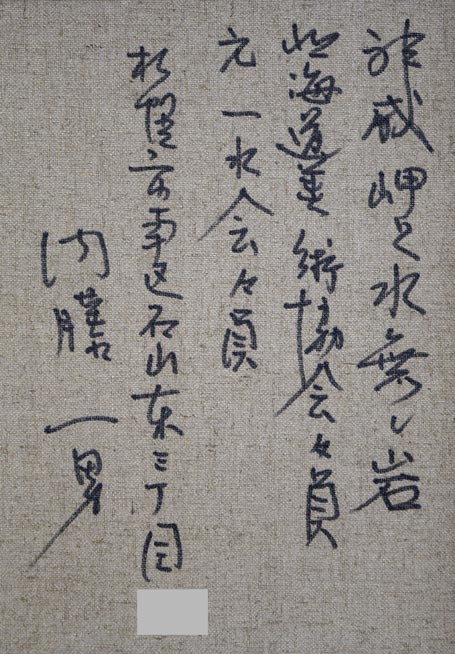 神威岬と水無し岩
北海道美術協会々員
元一水会々員
札幌市南区石山東三丁目
内藤一男